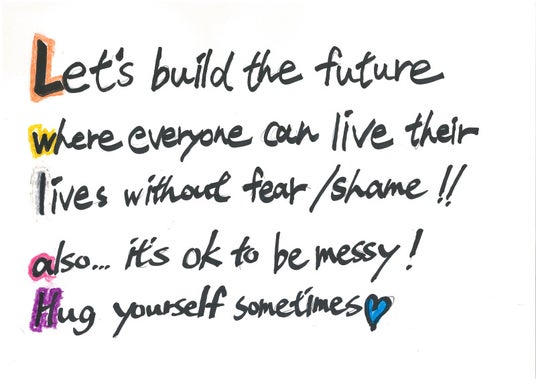 Let's build the future
where everyone can live their
lives without fear/shame!!
also... it's ok to be messy!
Hug yourself sometimes